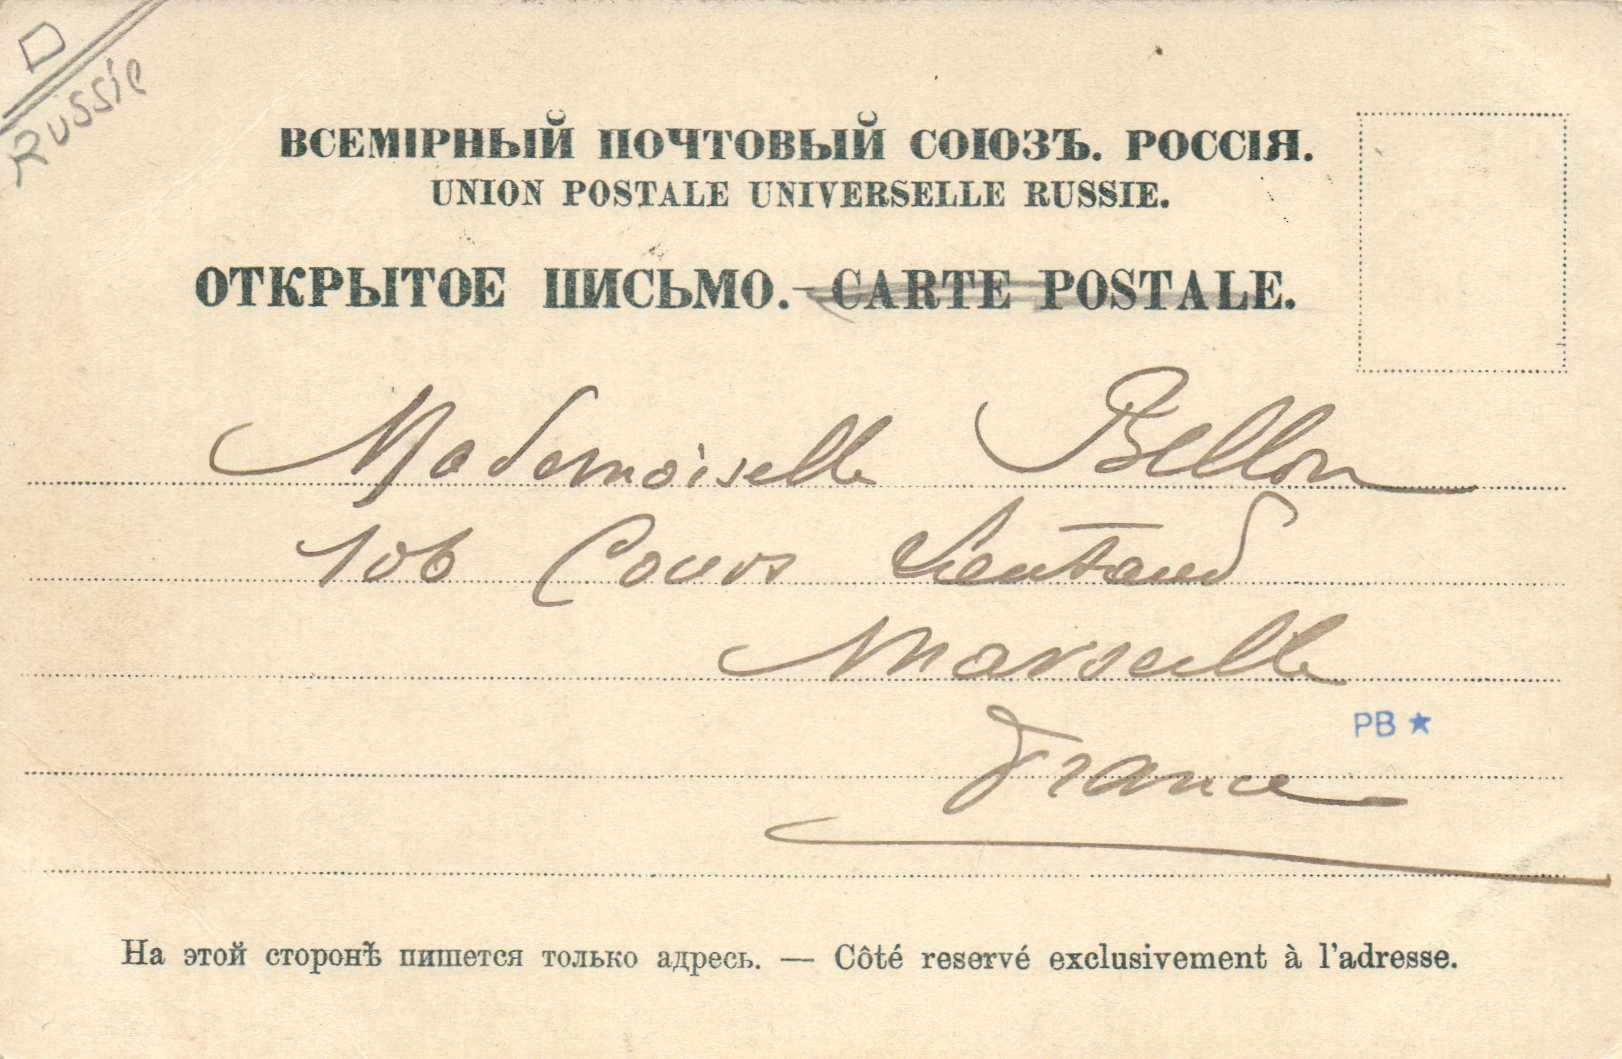 Russie
ВСЕМІРНЫЙ ПОЧТОВЫЙ СОЮЗЪ. РОССІЯ.
UNION POSTALE UNIVERSELLE RUSSIE.
ОТКРЫТОЕ ПИСЬМО. — CARTE POSTALE.
Mademoiselle Bellon
106 Cours Lieutaud
Marseille
France
PB ★
На этой сторонѣ пишется только адресъ. — Côté reservé exclusivement à l'adresse.